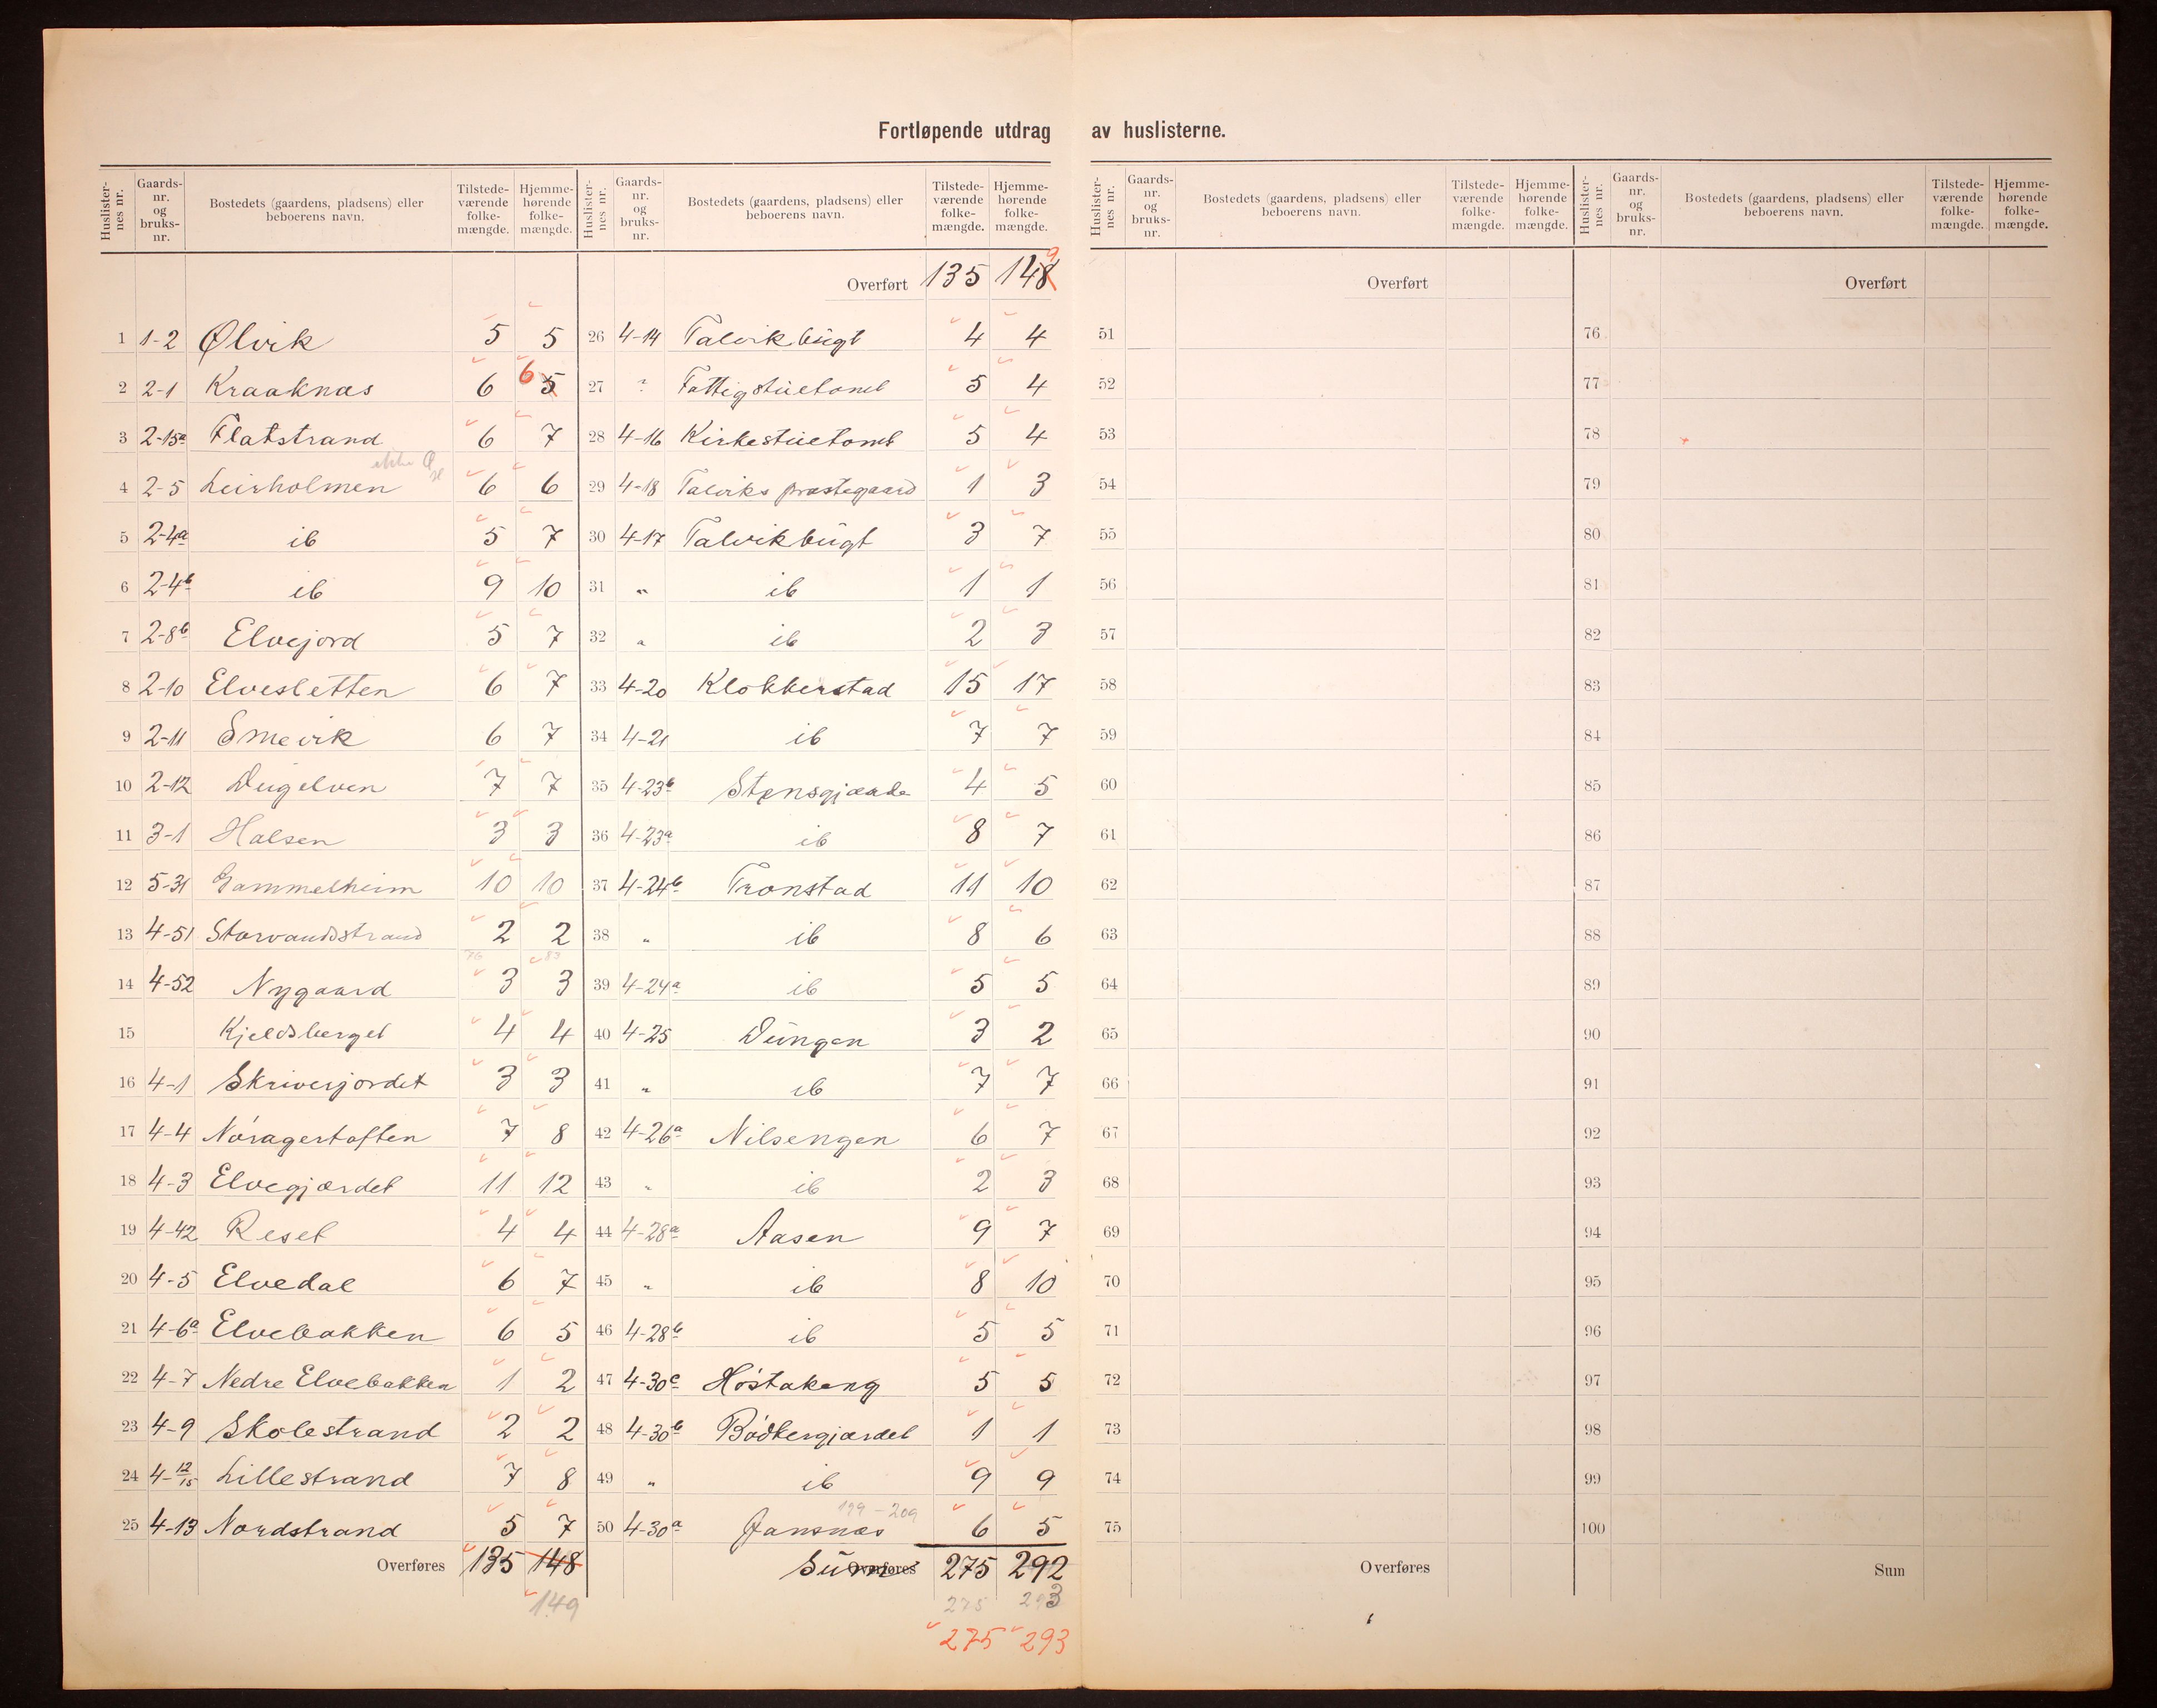 Fortløpende utdrag av huslisterne.
Huslister-nes nr. Gaards-nr. og bruks-nr. Bostedets (gaardens, pladsens) eller beboerens navn. Tilstede-værende folke-mængde. Hjemme-hørende folke-mængde.
1 1-2 Ølvik 5 5
2 2-1 Kraaknæs 6 5 6
3 2-15a Flatstrand 6 7
4 2-5 Leirholmen 6 6
5 2-4a ib 5 7
6 2-4b ib 9 10
7 2-8b Elvejord 5 7
8 2-10 Elvesletten 6 7
9 2-11 Smevik 6 7
10 2-12 Dugelven 7 7
11 3-1 Halsen 3 3
12 5-31 Gammelheim 10 10
13 4-51 Storvandsstrand 2 2
76 83
14 4-52 Nygaard 3 3
15 Kjeldsberget 4 4
16 4-1 Skriverjordet 3 3
17 4-4 Noragertoften 7 8
18 4-3 Elvegjærdet 11 12
19 4-42 Reset 4 4
20 4-5 Elvedal 6 7
21 4-6a Elvebakken 6 5
22 4-7 Nedre Elvebakken 1 2
23 4-9 Skolestrand 2 2
24 4-12/15 Lillestrand 7 8
25 4-13 Nordstrand 5 7
Overføres 135 148
149
Huslister-nes nr. Gaards-nr. og bruks-nr. Bostedets (gaardens, pladsens) eller beboerens navn. Tilstede-værende folke-mængde. Hjemme-hørende folke-mængde.
Overført 135 148 9
26 4-14 Talvikbugt 4 4
27 " Fattigstuetomt 5 4
28 4-16 Kirkestuetomt 5 4
29 4-18 Talviks præstegaard 1 3
30 4-17 Talvikbugt 3 7
31 " ib 1 1
32 " ib 2 3
33 4-20 Klokkerstad 15 17
34 4-21 ib 7 7
35 4-23b Stensgjærde 4 5
36 4-23a ib 8 7
37 4-24b Tronstad 11 10
38 " ib 8 6
39 4-24a ib 5 5
40 4-25 Dungen 3 2
41 " ib 7 7
42 4-26a Nilsengen 6 7
43 " ib 2 3
44 4-28a Aasen 9 7
45 " ib 8 10
46 4-28b ib 5 5
47 4-30c Høstakeng 5 5
48 4-30b Bødkergjærdet 1 1
49 " ib 9 9
199-209
50 4-30a Jansnæs 6 5
Overføres Sum 275 292
275 293
275 293
Huslister-nes nr. Gaards-nr. og bruks-nr. Bostedets (gaardens, pladsens) eller beboerens navn. Tilstede-værende folke-mængde. Hjemme-hørende folke-mængde.
Overført
51
52
53
54
55
56
57
58
59
60
61
62
63
64
65
66
67
68
69
70
71
72
73
74
75
Overføres
Huslister-nes nr. Gaards-nr. og bruks-nr. Bostedets (gaardens, pladsens) eller beboerens navn. Tilstede-værende folke-mængde. Hjemme-hørende folke-mængde.
Overført
76
77
78
79
80
81
82
83
84
85
86
87
88
89
90
91
92
93
94
95
96
97
98
99
100
Sum